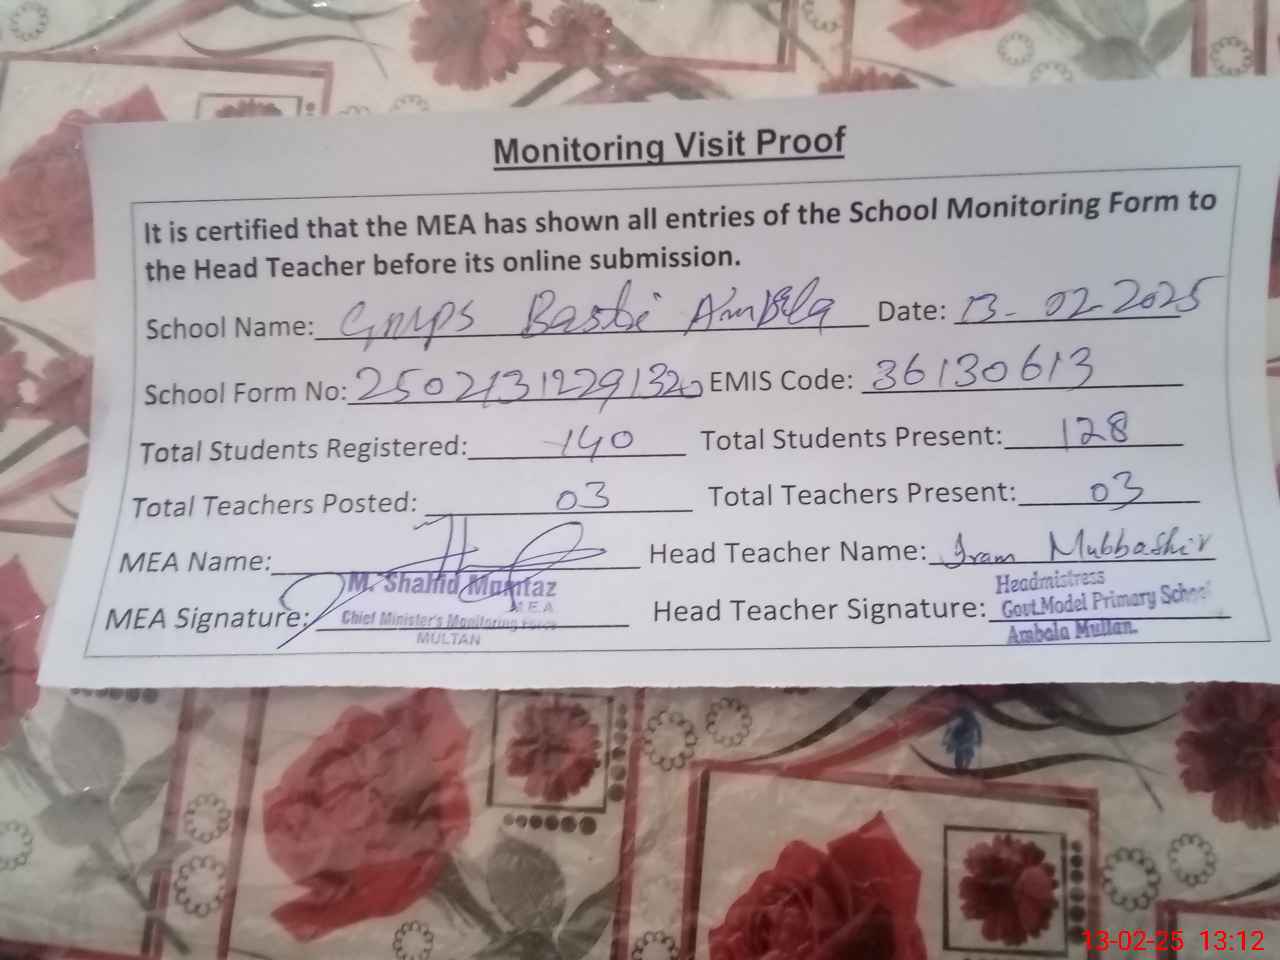 Monitoring Visit Proof
It is certified that the MEA has shown all entries of the School Monitoring Form to
the Head Teacher before its online submission.
School Name: Gmps Basti Ambala Date: 13-02-2025
School Form No: 25021312291320 EMIS Code: 36130613
Total Students Registered: 140 Total Students Present: 128
Total Teachers Posted: 03 Total Teachers Present: 03
MEA Name: Head Teacher Name: Iram Mubbashir
M. Shahid Mumtaz
M.E.A
MEA Signature: Chief Minister's Monitoring Force
MULTAN
Headmistress
Head Teacher Signature: Govt.Model Primary School
Ambala Multan.
13-02-25 13:12